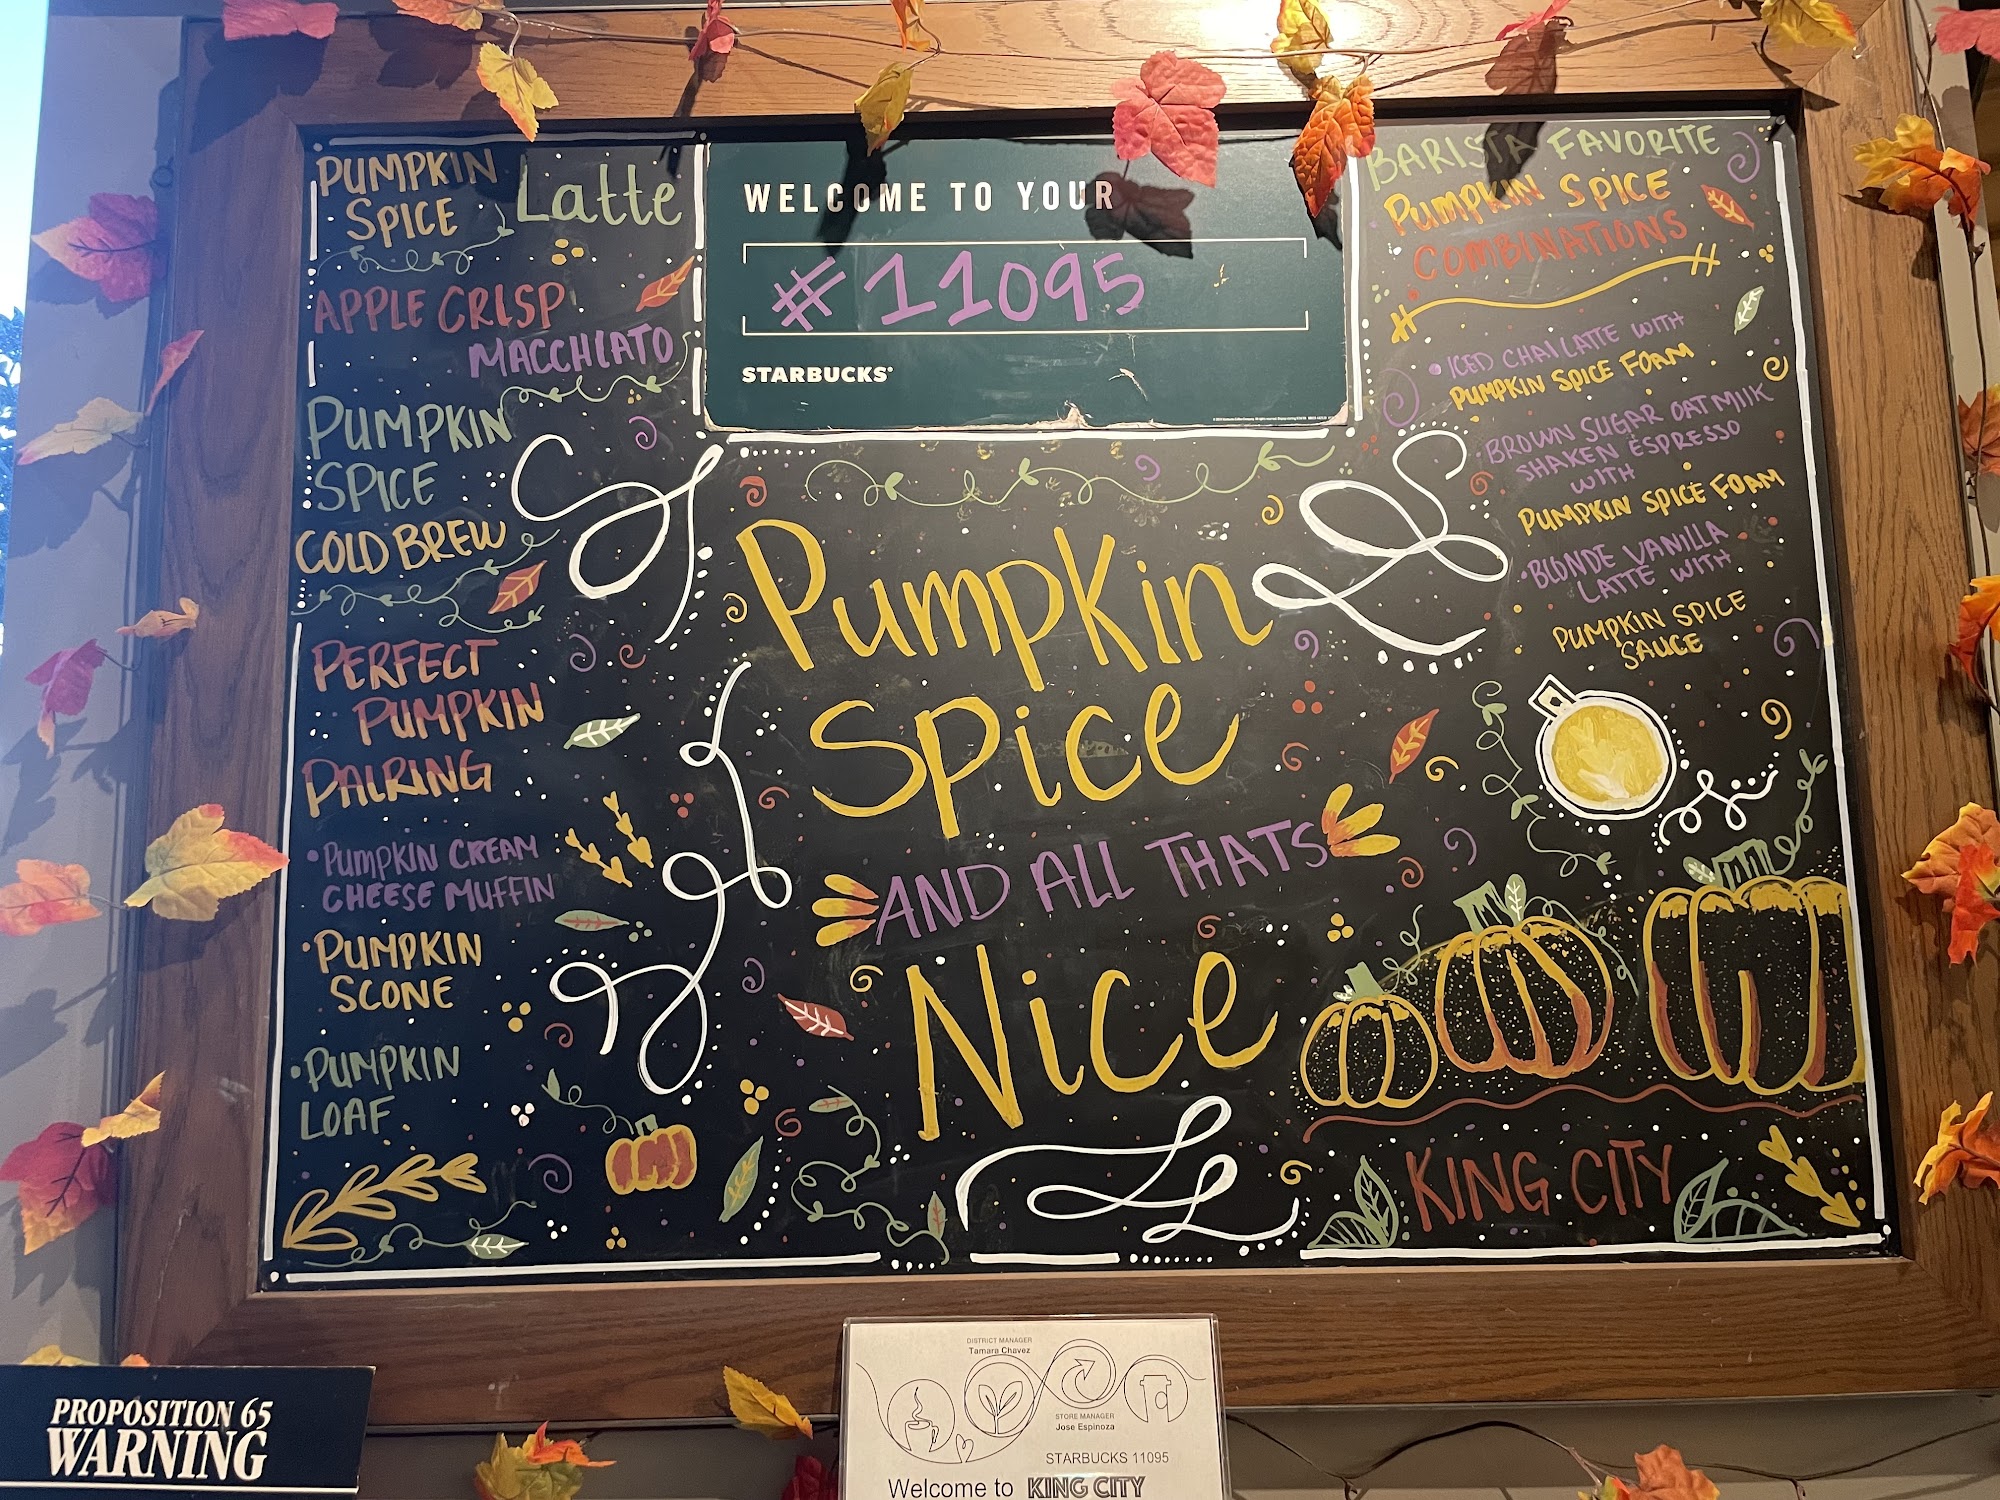 PUMPKIN
SPICE Latte
APPLE CRISP
MACCHIATO
PUMPKIN
SPICE
COLD BREW
PERFECT
PUMPKIN
PAIRING
• PUMPKIN CREAM
CHEESE MUFFIN
• PUMPKIN
SCONE
• PUMPKIN
LOAF
WELCOME TO YOUR
#11095
STARBUCKS
Pumpkin
Spice
AND ALL THATS
Nice
BARISTA FAVORITE
PUMPKIN SPICE
COMBINATIONS
• ICED CHAI LATTE WITH
PUMPKIN SPICE FOAM
• BROWN SUGAR OATMILK
SHAKEN ESPRESSO
WITH
PUMPKIN SPICE FOAM
• BLONDE VANILLA
LATTE WITH
PUMPKIN SPICE
SAUCE
KING CITY
PROPOSITION 65
WARNING
DISTRICT MANAGER
Tamara Chavez
STORE MANAGER
Jose Espinoza
STARBUCKS 11095
Welcome to KING CITY